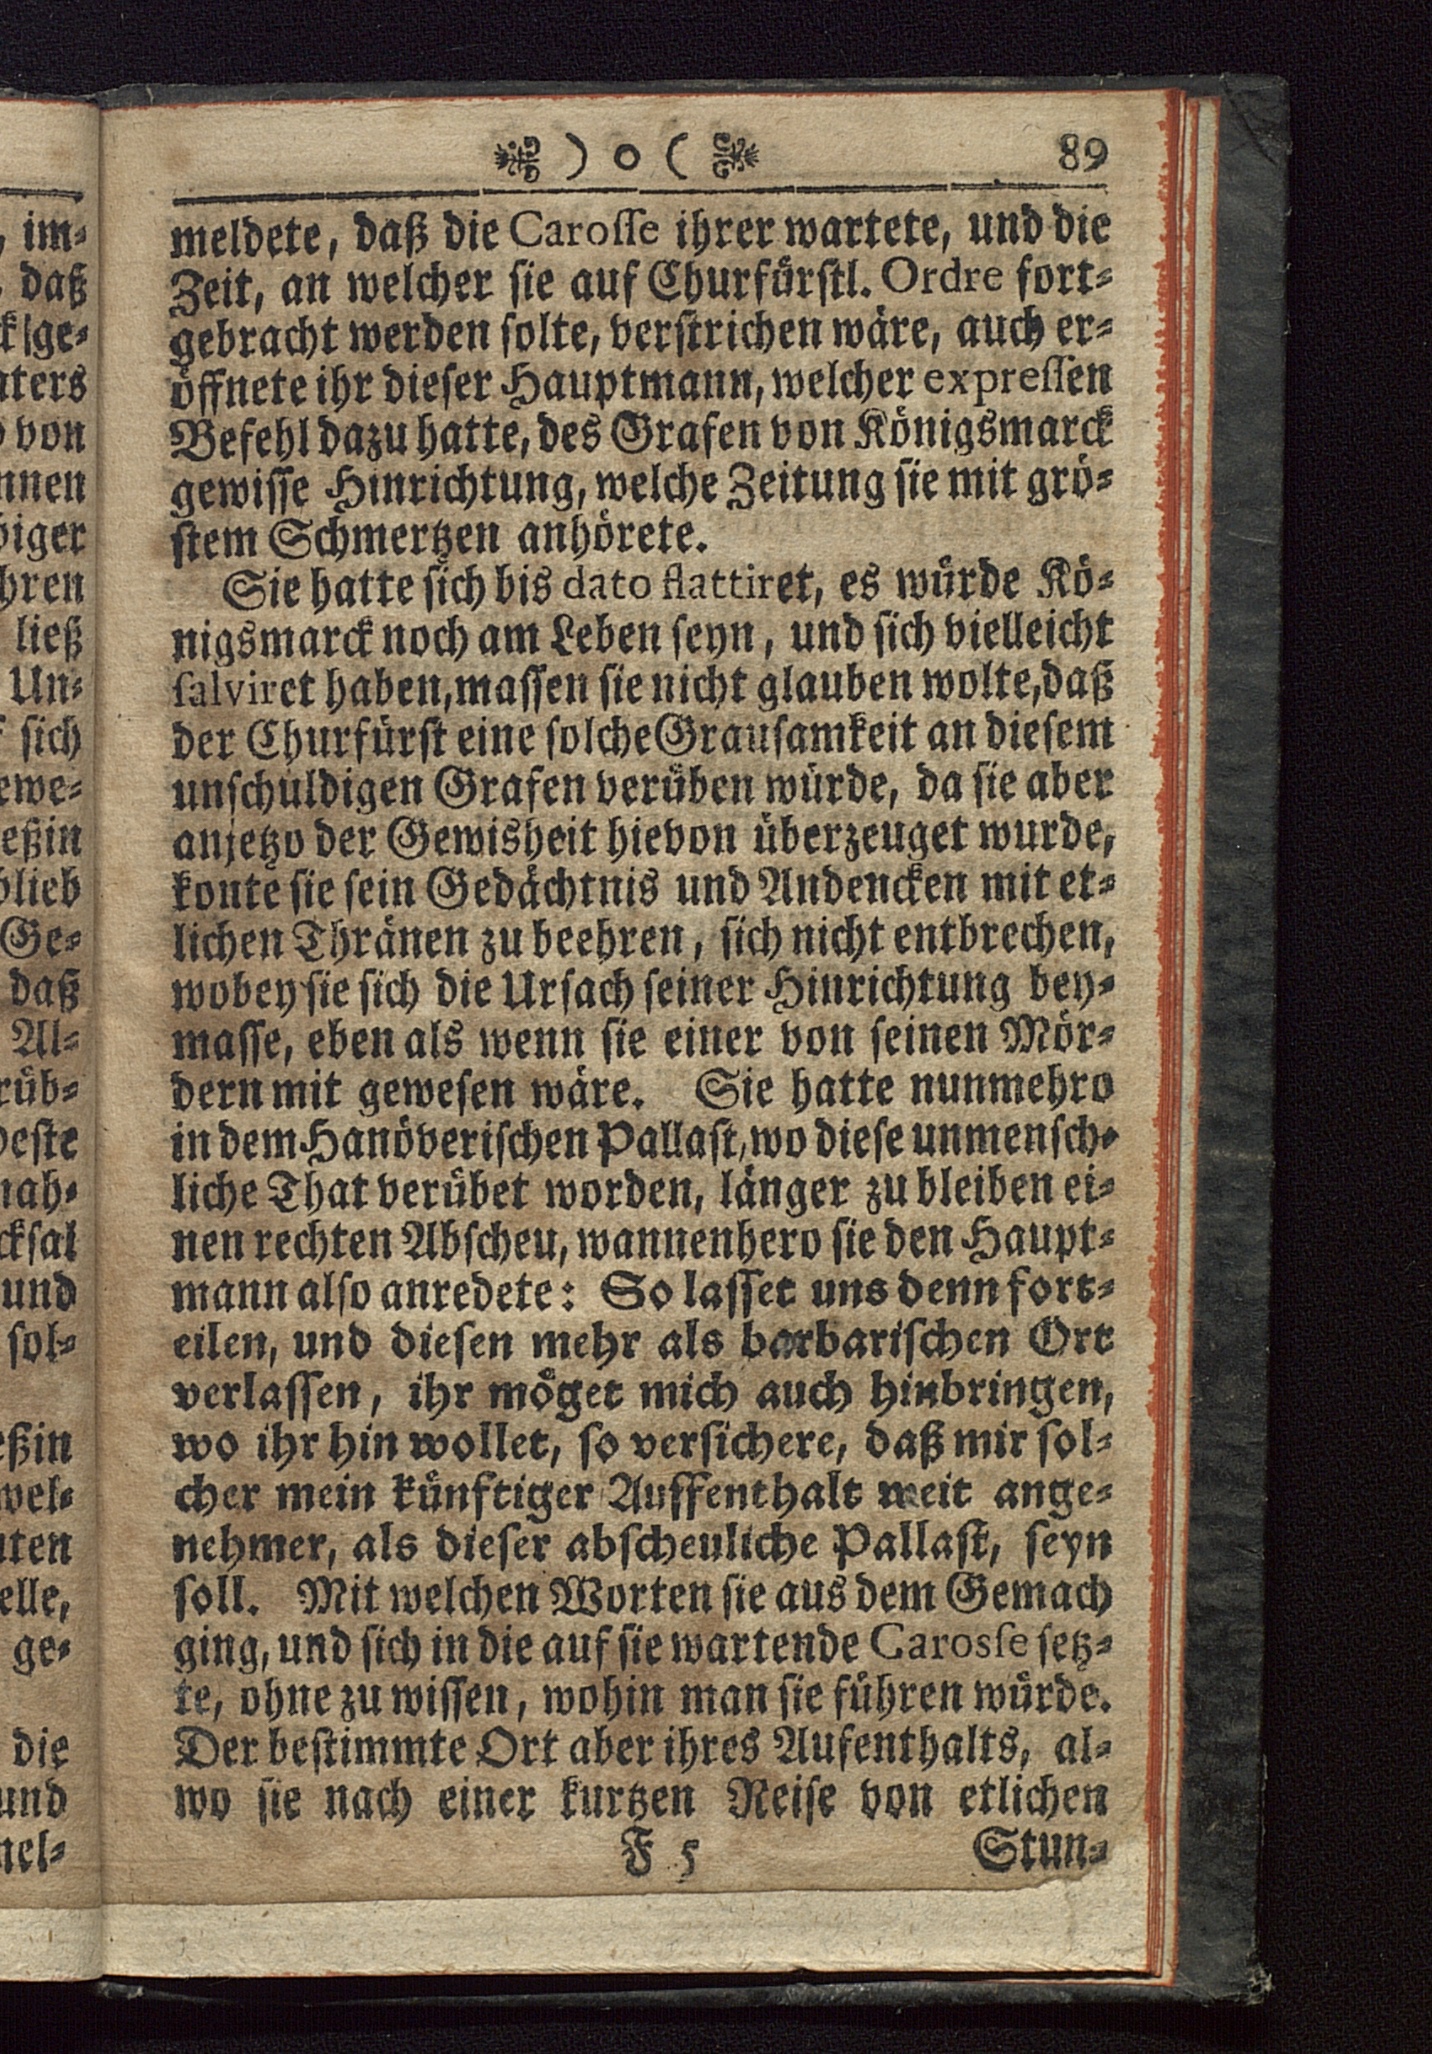 ) o ( 89
meldete, daß die Carosse ihrer wartete, und die
Zeit, an welcher sie auf Churfürstl. Ordre fort-
gebracht werden solte, verstrichen wäre, auch er-
öffnete ihr dieser Hauptmann, welcher expressen
Befehl dazu hatte, des Grafen von Königsmarck
gewisse Hinrichtung, welche Zeitung sie mit grö-
stem Schmertzen anhörete.
Sie hatte sich bis dato flattiret, es würde Kö-
nigsmarck noch am Leben seyn, und sich vielleicht
salviret haben, massen sie nicht glauben wolte, daß
der Churfürst eine solche Grausamkeit an diesem
unschuldigen Grafen verüben würde, da sie aber
anjetzo der Gewisheit hievon überzeuget wurde,
konte sie sein Gedächtnis und Andencken mit et-
lichen Thränen zu beehren, sich nicht entbrechen,
wobey sie sich die Ursach seiner Hinrichtung bey-
masse, eben als wenn sie einer von seinen Mör-
dern mit gewesen wäre. Sie hatte nunmehro
in dem Hanöverischen Pallast, wo diese unmensch-
liche That verübet worden, länger zu bleiben ei-
nen rechten Abscheu, wannenhero sie den Haupt-
mann also anredete: So lasset uns denn fort-
eilen, und diesen mehr als barbarischen Ort
verlassen, ihr möget mich auch hinbringen,
wo ihr hin wollet, so versichere, daß mir sol-
cher mein künftiger Auffenthalt weit ange-
nehmer, als dieser abscheuliche Pallast, seyn
soll. Mit welchen Worten sie aus dem Gemach
ging, und sich in die auf sie wartende Carosse setz-
te, ohne zu wissen, wohin man sie führen würde.
Der bestimmte Ort aber ihres Aufenthalts, al-
wo sie nach einer kurtzen Reise von etlichen
F 5 Stun-